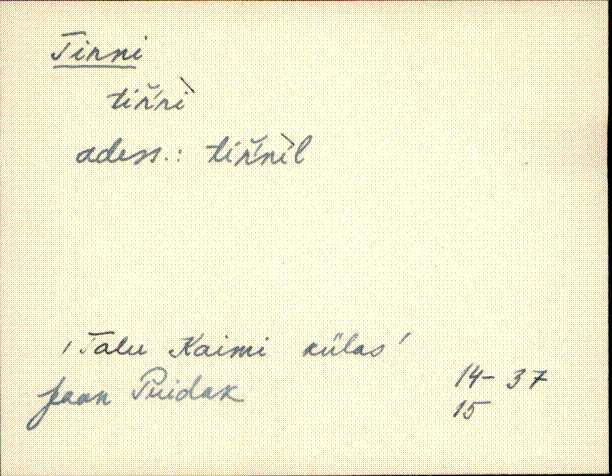 Tinni
tiňni
adess.: tiňnil
'Talu Kaimi külas'
Jaan Puidak
14- 37
15